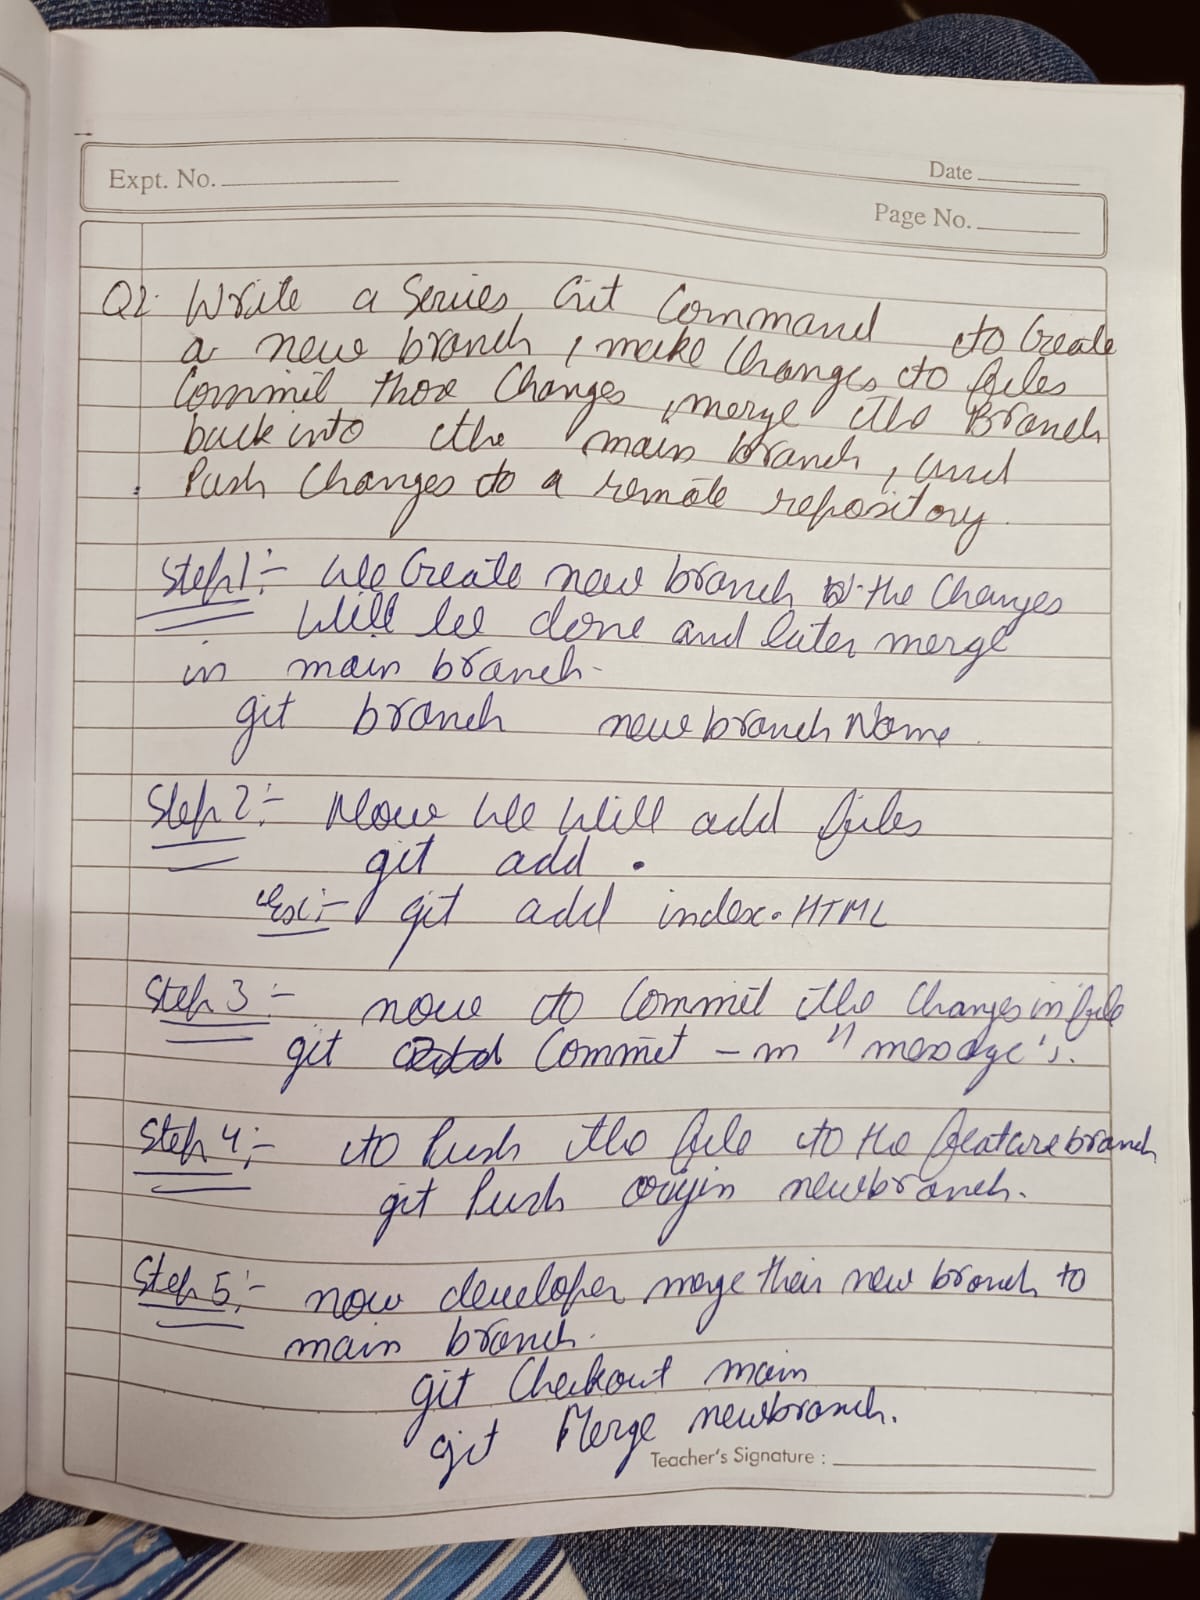 Expt. No.
Date
Page No.
Q2. Write a Series Git Command to Create
a new branch, make changes to files
Commit those Changes, merge the Branch
back into the main branch, and
Push Changes to a remote repository.
Step 1:- We Create new branch the Changes
Will be done and later merge
in main branch.
git branch newbranchName.
Step 2:- Now We Will add files
git add .
Ex:- git add index.HTML
Step 3:- now to Commit the Changes in file
git Commit -m "message's.
Step 4:- to Push the file to the featurebranch
git Push origin newbranch.
Step 5:- now developer merge their new branch to
main branch.
git Checkout main
git Merge newbranch.
Teacher's Signature :